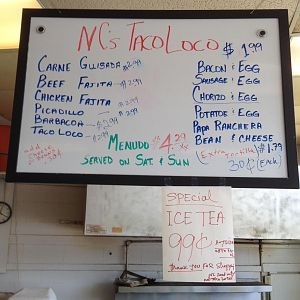 NC's Taco Loco $1.99
Carne Guisada 2.99
Beef Fajita 2.99
Chicken Fajita 2.99
Picadillo 2.99
Barbacoa 2.99
Taco Loco 2.99
Bacon & Egg
Sausage & Egg
Chorizo & Egg
Potatoe & Egg
Papa Ranchera
Bean & Cheese $1.79
Menudo $4.29
Served on Sat. & Sun
(Extra Tortilla
30¢ (Each)
add
Special
ICE TEA
99¢
Thank You For Stopping